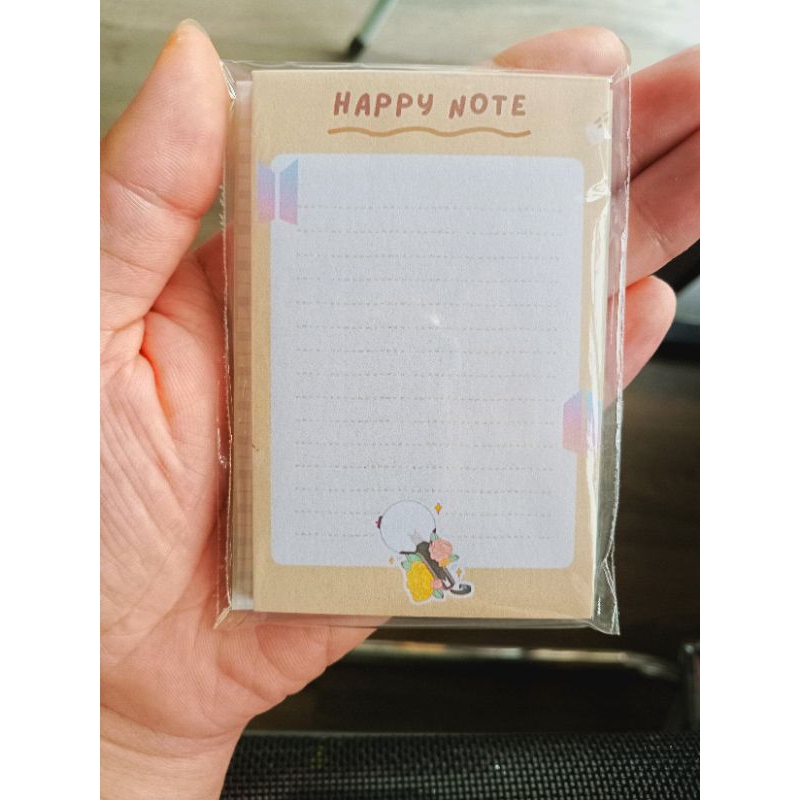 HAPPY NOTE